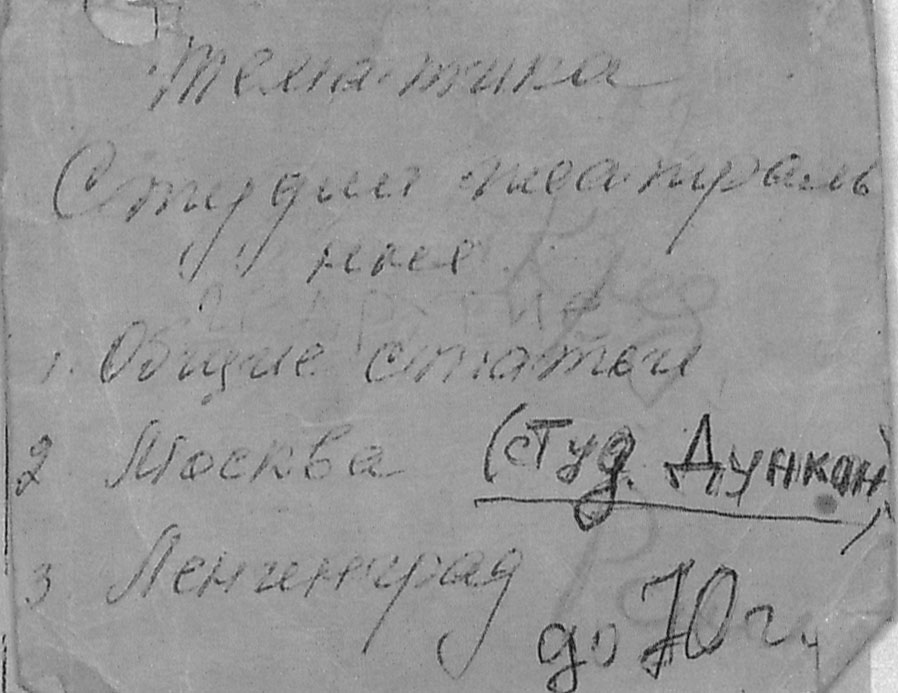 Тематика
Студии театраль
ные
1. Общие статьи
2 Москва (студ. Дункан)
3 Ленинград
до 70 г.